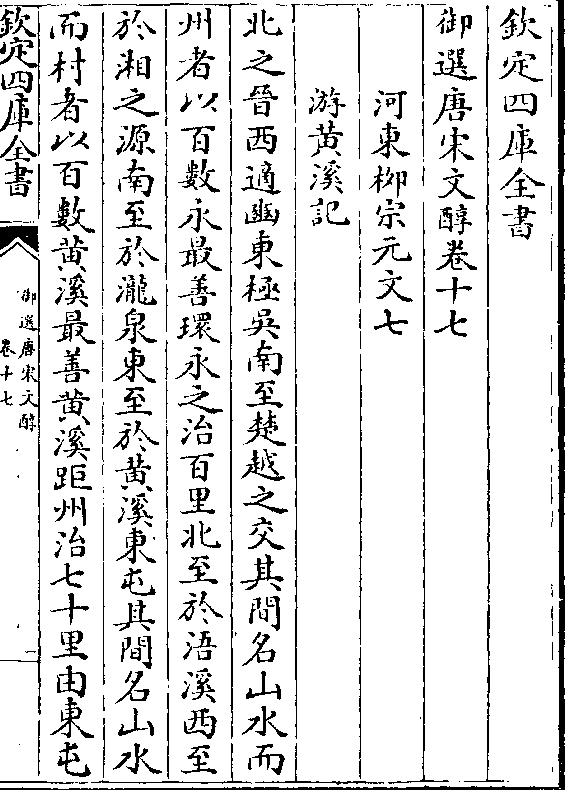 欽定四庫全書
御選唐宋文醇卷十七
河東柳宗元文七
游黄溪記
北之晉西適豳東極吳南至楚越之交其間名山水而
州者以百數永最善環永之治百里北至於浯溪西至
於湘之源南至於瀧泉東至於黄溪東屯其間名山水
而村者以百數黄溪最善黄溪距州治七十里由東屯
欽定四庫全書
御選唐宋文醇
卷十七
一